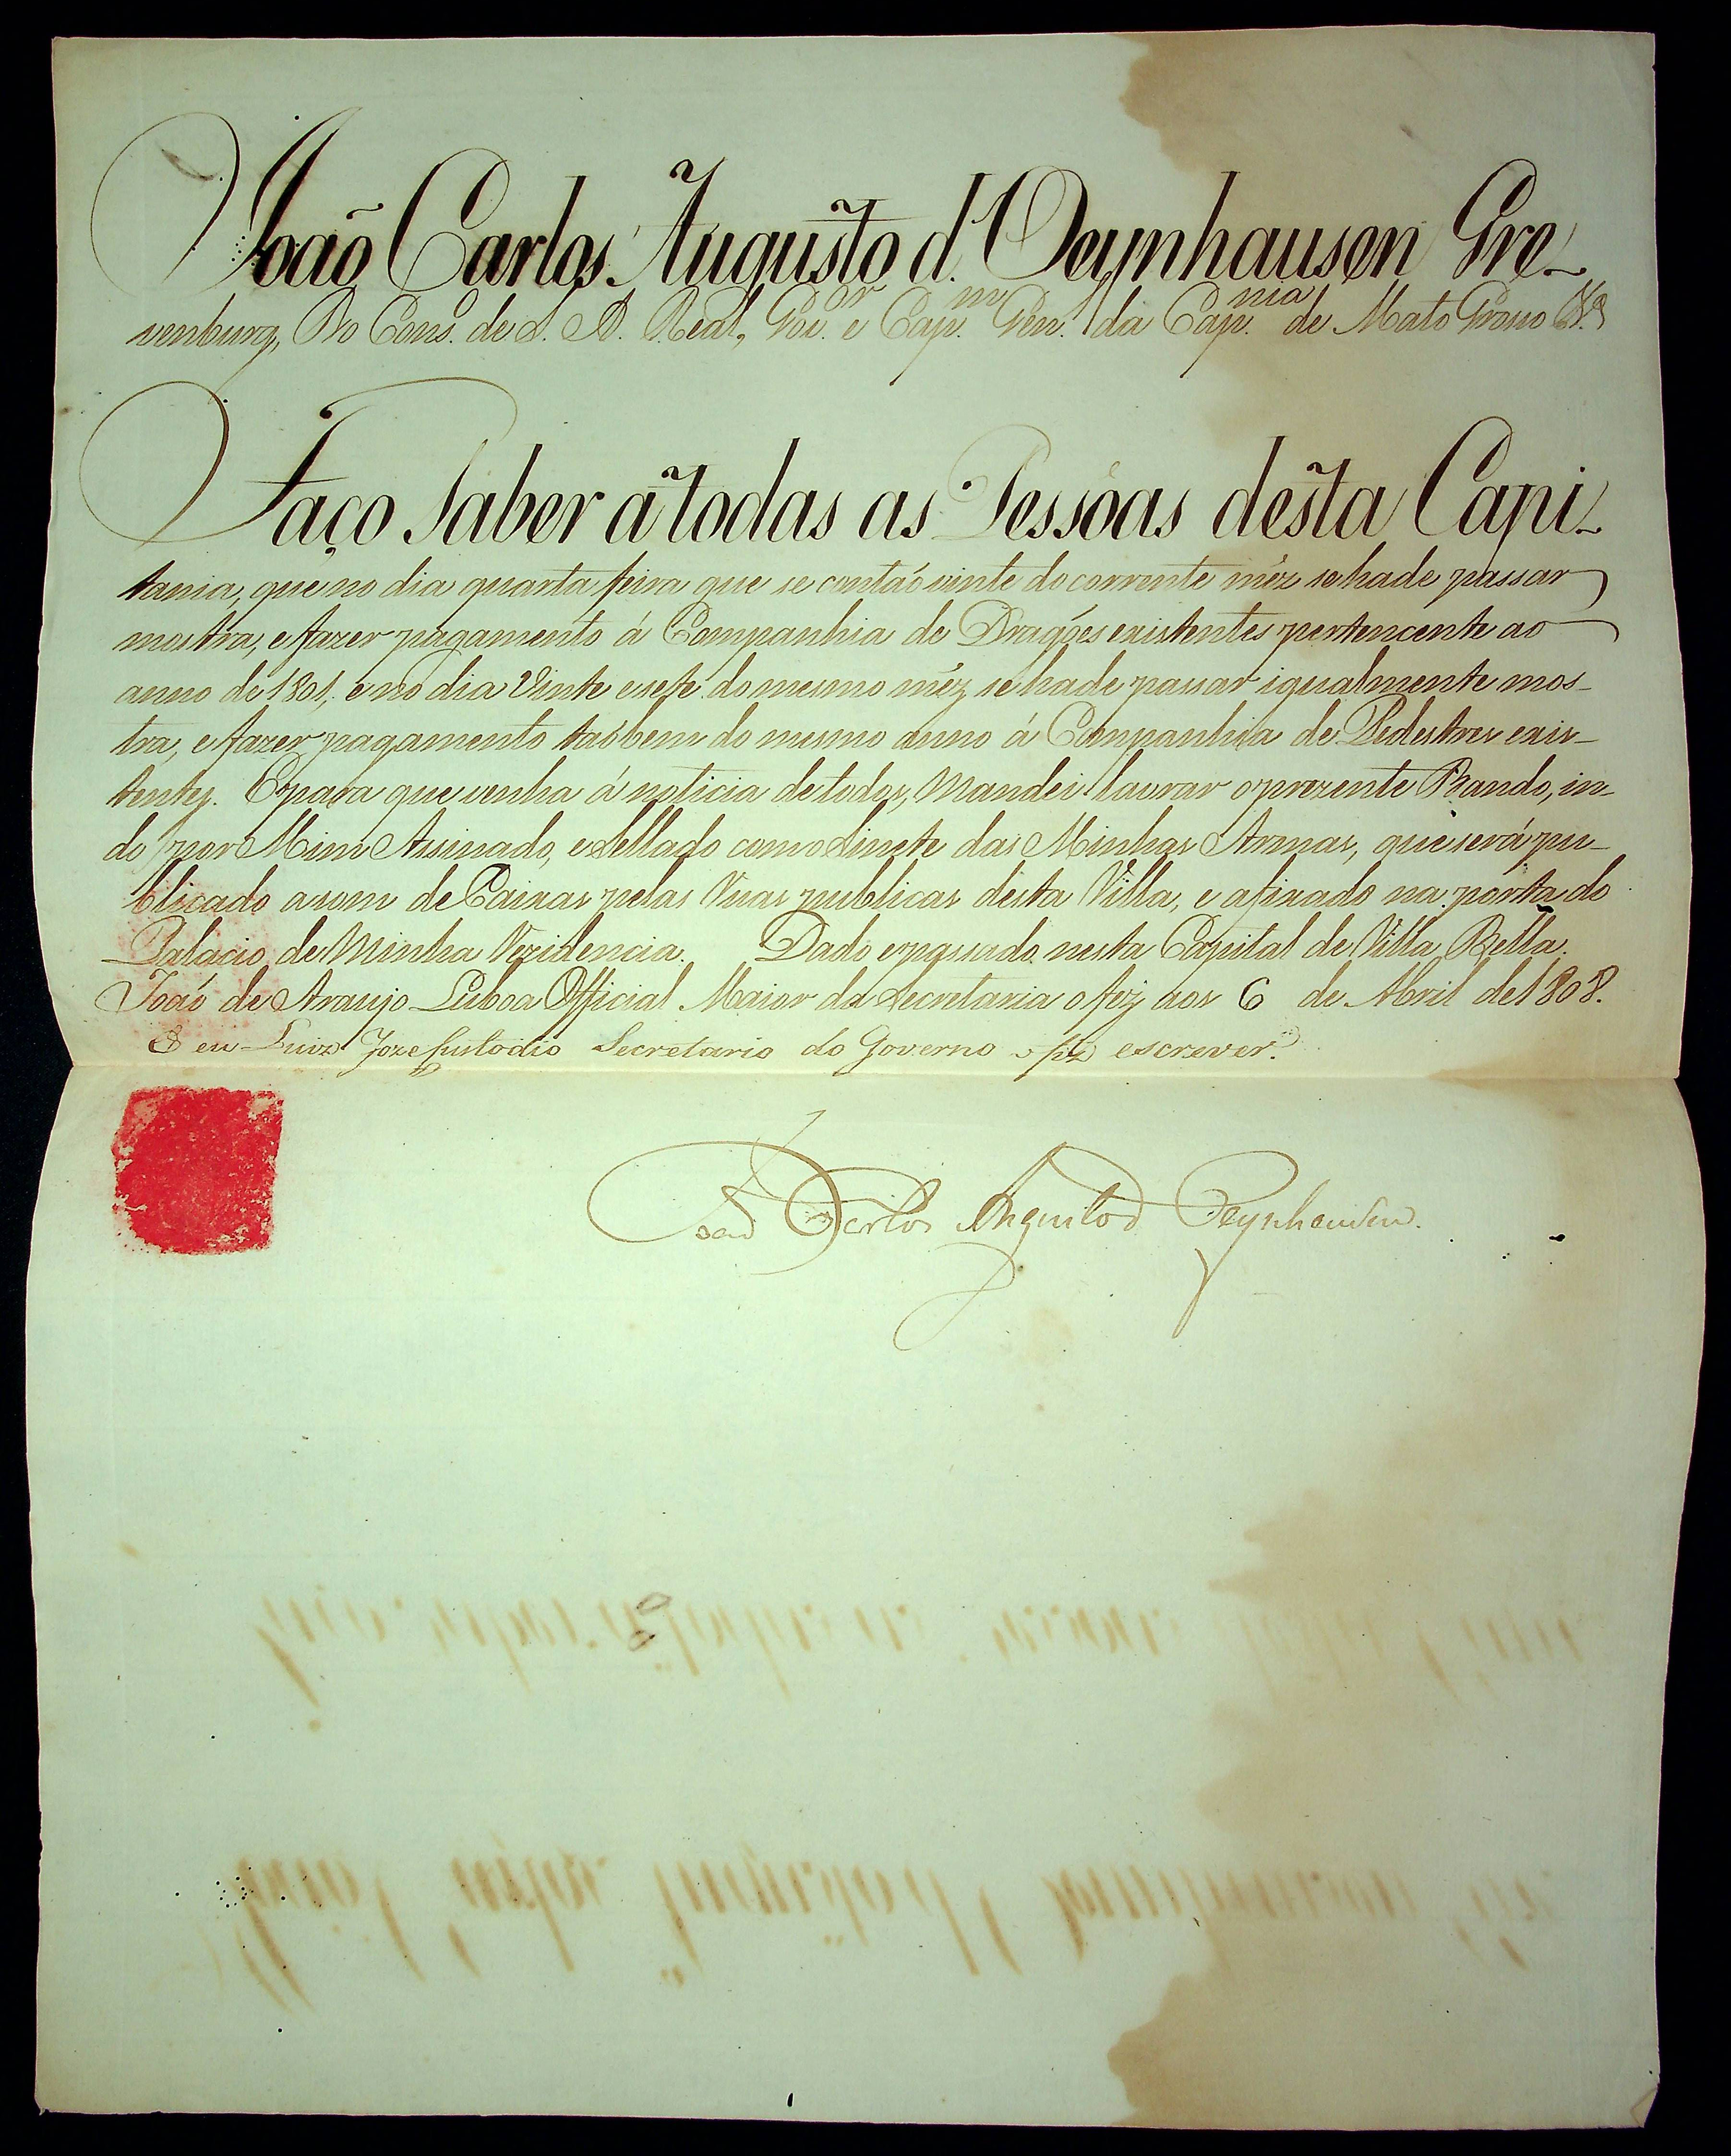 João Carlos Augusto d'Oeynhausen Gre-
venburg, Do Cons. de S. A. Real, Gov.or e Cap.m Gen.l da Cap.nia de Mato Grosso &.a
Faço Saber á todas as Pessôas desta Capi-
tania, que no dia quarta feira que se contaõ vinte do corrente mêz se hade passar
mostra, e fazer pagamento á Companhia de Dragões existentes pertencente ao
anno de 1801, e no dia Vinte e sete do mesmo mêz, se hade passar igualmente mos-
tra, e fazer pagamento taõbem do mesmo anno á Companhia de Pedestres exis-
tentes. E para que venha á noticia de todos, Mandei lavrar o prezente Bando, in-
do por Mim Assinado, e Sellado com o Sinete das Minhas Armas, que será pu-
blicado a som de Caixas pelas Ruas publicas desta Villa, e afixado na porta do
Palacio de Minha Rezidencia. Dado e passado nesta Capital de Villa Bella.
Joaõ de Araujo Lisboa Official Maior da Secretaria o fez aos 6 de Abril de 1808.
E eu Luiz Joze Custodio Secretario do Governo o fiz escrever.
João Carlos Augusto d'Oeynhausen.